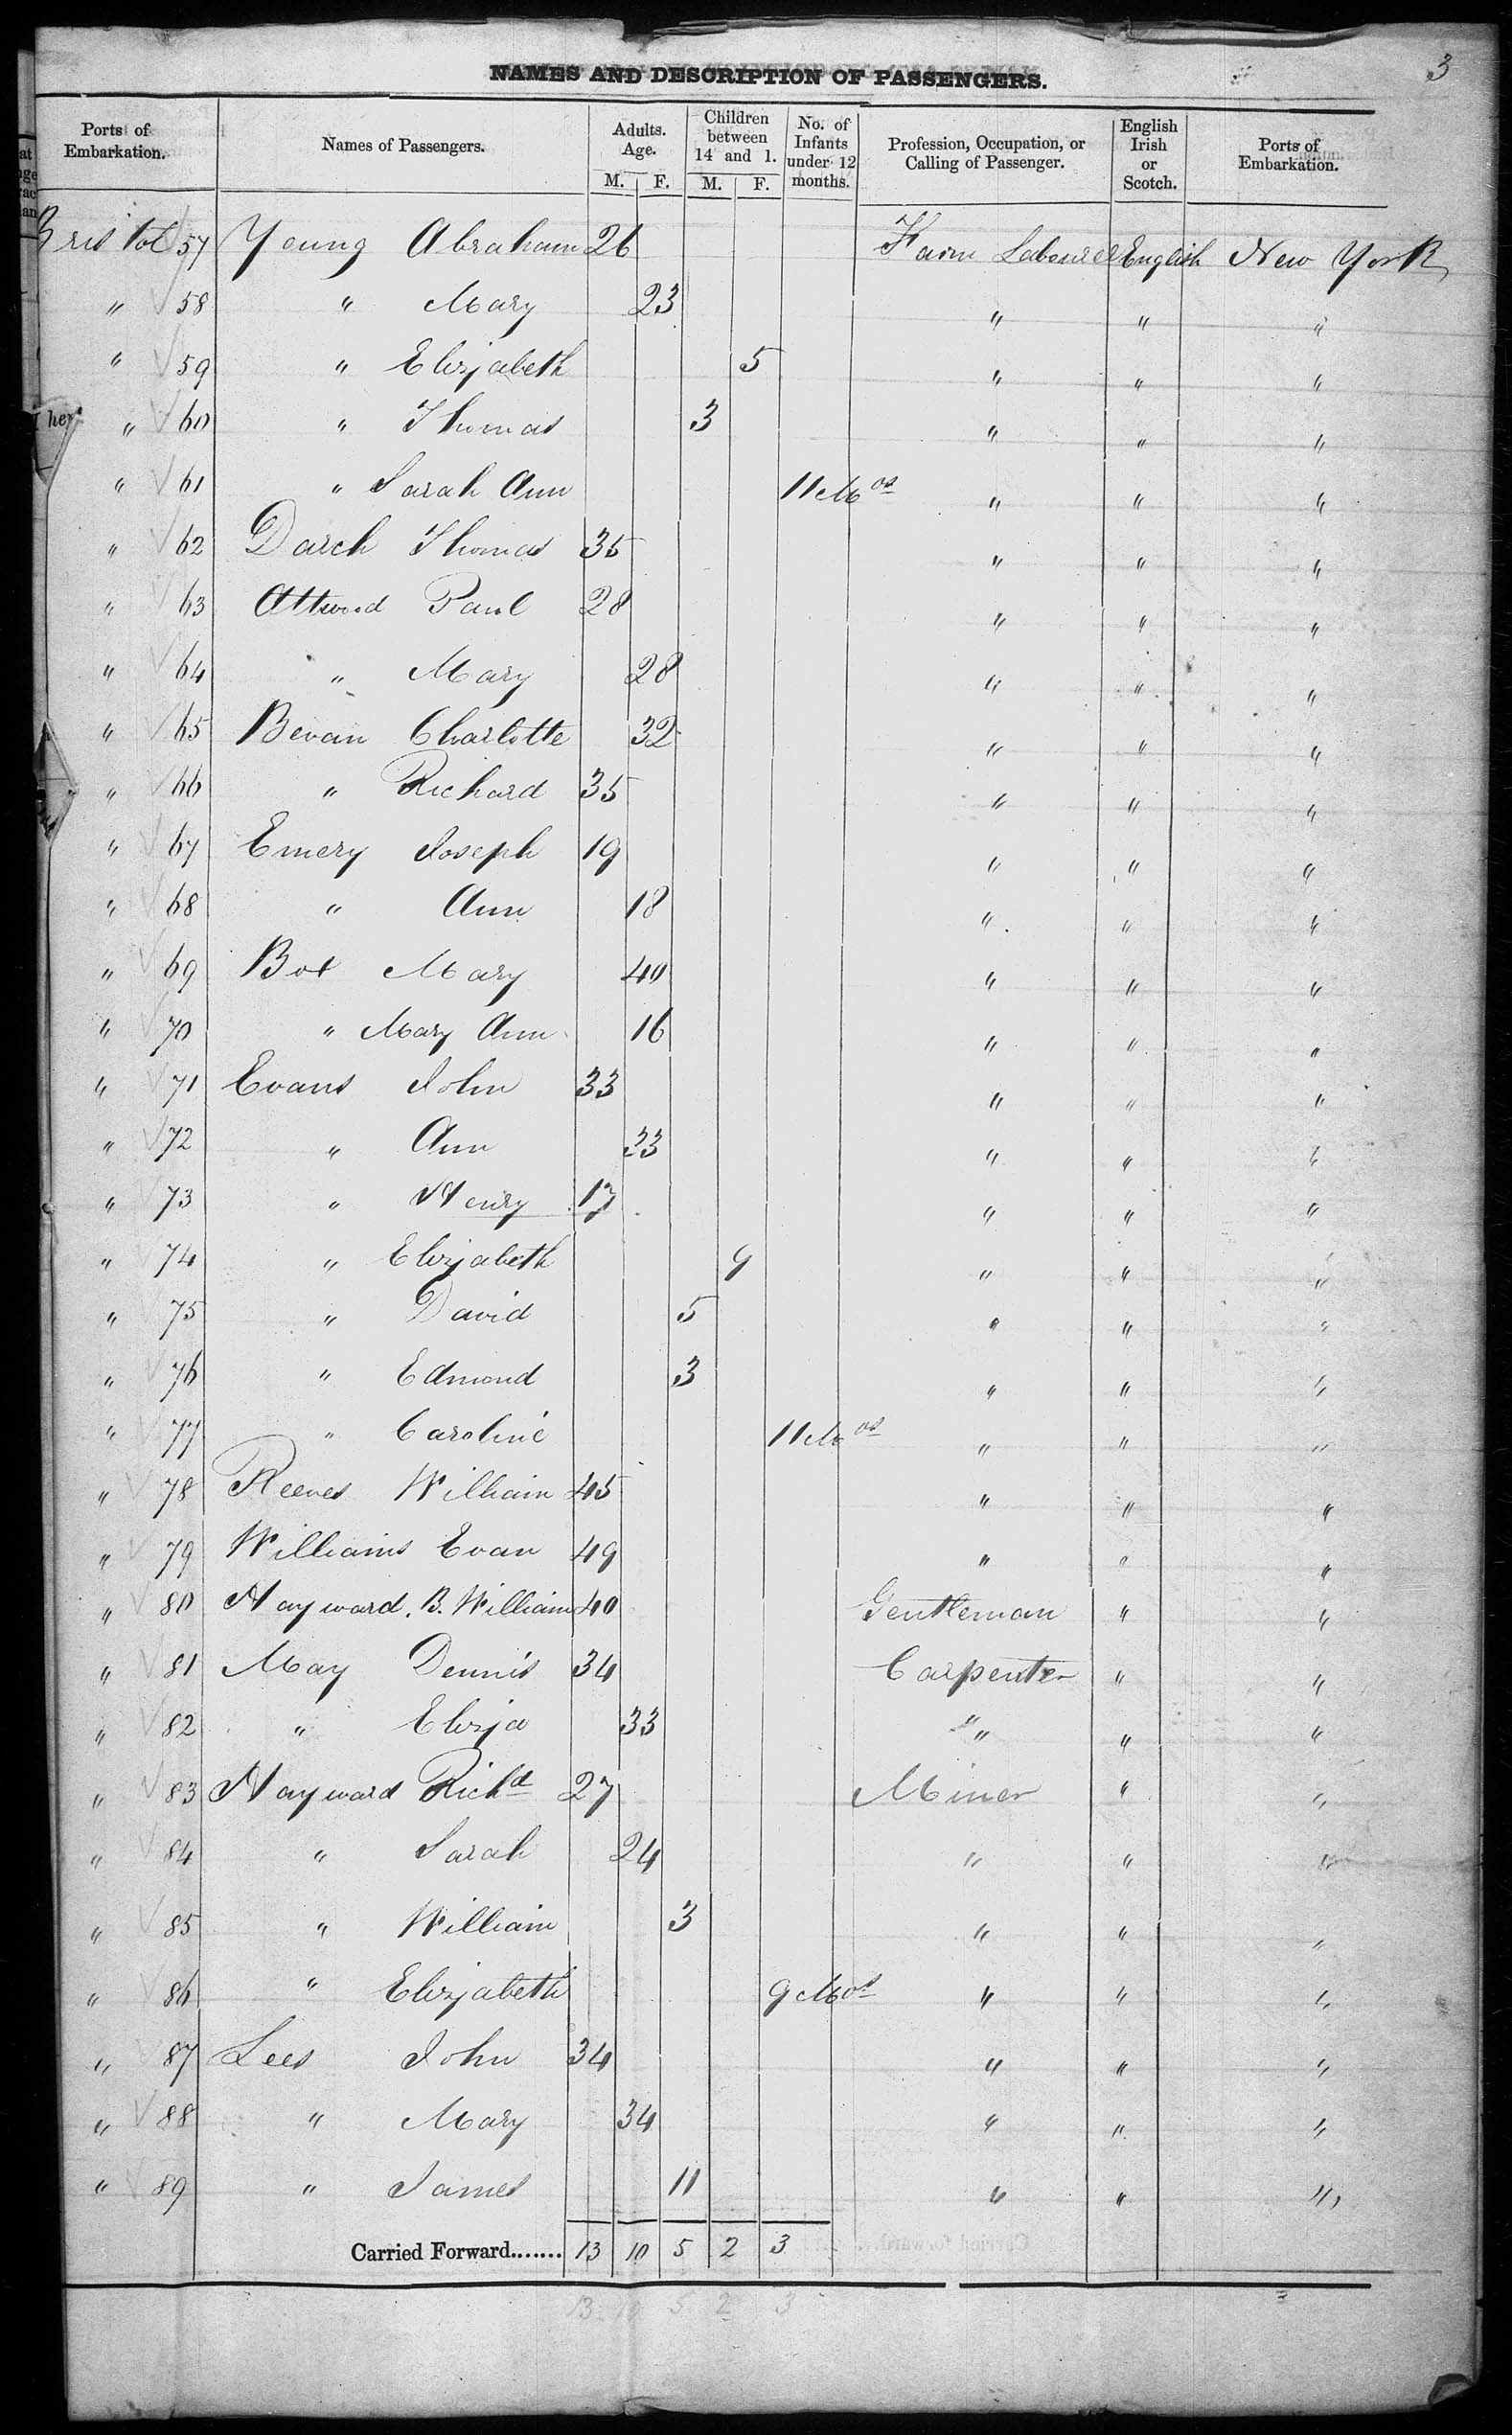 3
NAMES AND DESCRIPTION OF PASSENGERS.
Ports of Embarkation. Names of Passengers. Adults. Age. M. F. Children between 14 and 1. M. F. No. of Infants under 12 months. Profession, Occupation, or Calling of Passenger. English Irish or Scotch. Ports of Embarkation.
Bristol 57 Young Abraham 26 Farm Labourer English New York
" 58 " Mary 23 " " "
" 59 " Elizabeth 5 " " "
" 60 " Thomas 3 " " "
" 61 " Sarah Ann 11 Mos " " "
" 62 Darch Thomas 35 " " "
" 63 Attwood Paul 28 " " "
" 64 " Mary 28 " " "
" 65 Bevan Charlotte 32 " " "
" 66 " Richard 35 " " "
" 67 Emery Joseph 19 " " "
" 68 " Ann 18 " " "
" 69 Box Mary 40 " " "
" 70 " Mary Ann 16 " " "
" 71 Evans John 33 " " "
" 72 " Ann 33 " " "
" 73 " Henry 17 " " "
" 74 " Elizabeth 9 " " "
" 75 " David 5 " " "
" 76 " Edmond 3 " " "
" 77 " Caroline 11 Mos " " "
" 78 Reeves William 45 " " "
" 79 Williams Evan 49 " " "
" 80 Hayward. B. William 40 Gentleman " "
" 81 May Dennis 34 Carpenter " "
" 82 " Eliza 33 " " "
" 83 Hayward Richd 27 Miner " "
" 84 " Sarah 24 " " "
" 85 " William 3 " " "
" 86 " Elizabeth 9 Mos " " "
" 87 Lees John 34 " " "
" 88 " Mary 34 " " "
" 89 " James 11 " " "
Carried Forward....... 13 10 5 2 3
13 10 5 2 3